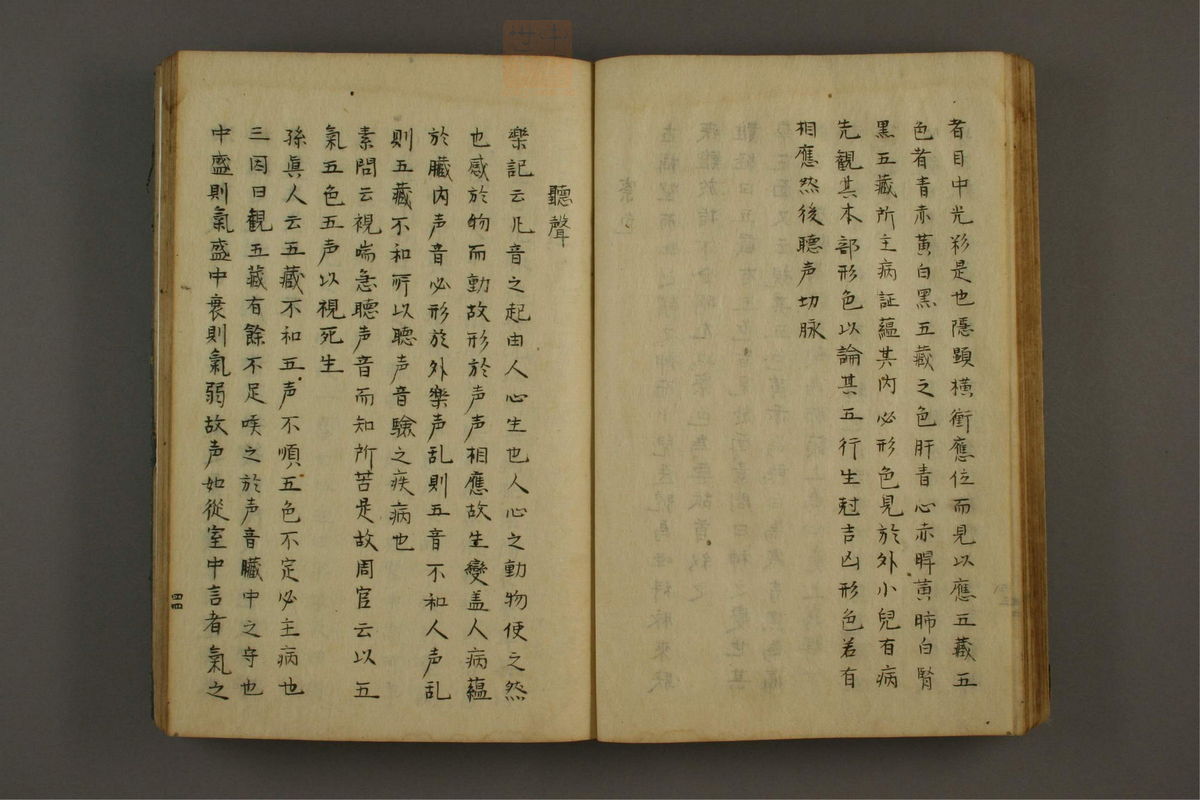 者目中光彩是也隱顯橫衝應位而見以應五藏五
色者青赤黃白黑五藏之色肝青心赤脾黃肺白腎
黑五藏所主病証蘊其內必形色見於外小兒有病
先觀其本部形色以論其五行生尅吉凶形色若有
相應然後聽声切脉
聽聲
樂記云凡音之起由人心生也人心之動物使之然
也感於物而動故形於声声相應故生變盖人病蘊
於臟內声音必形於外樂声乱則五音不和人声乱
則五藏不和所以聽声音驗之疾病也
素問云視喘息聽声音而知所苦是故周官云以五
氣五色五声以視死生
孫眞人云五藏不和五声不順五色不定必主病也
三因曰觀五藏有餘不足候之於声音臟中之守也
中盛則氣盛中衰則氣弱故声如從室中言者氣之
四四